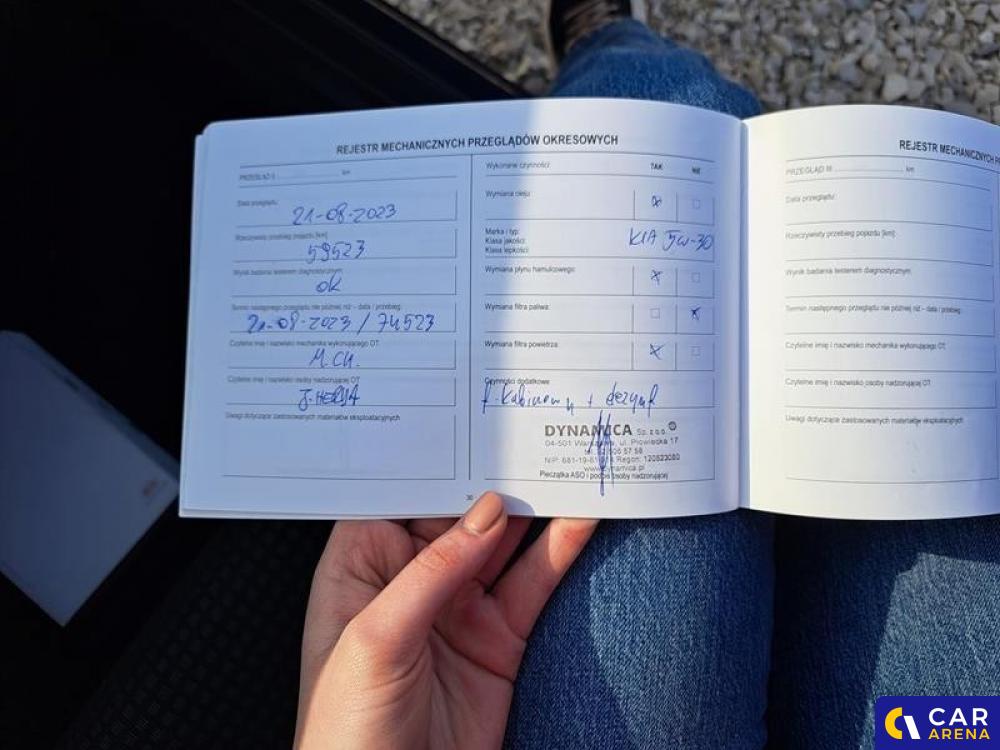 REJESTR MECHANICZNYCH PRZEGLĄDÓW OKRESOWYCH
PRZEGLĄD II km
Data przeglądu:
21-08-2023
Rzeczywisty przebieg pojazdu [km]:
59523
Wynik badania testerem diagnostycznym:
ok
Termin następnego przeglądu nie później niż – data / przebieg:
21-08-2023 / 74523
Czytelne imię i nazwisko mechanika wykonującego OT:
M.CH.
Czytelne imię i nazwisko osoby nadzorującej OT:
Uwagi dotyczące zastosowanych materiałów eksploatacyjnych
30
Wykonane czynności: TAK NIE
Wymiana oleju:
Marka i typ:
Klasa jakości:
Klasa lepkości:
KIA 5W-30
Wymiana płynu hamulcowego:
Wymiana filtra paliwa:
Wymiana filtra powietrza:
Czynności dodatkowe
f. kabinowy +
DYNAMICA Sp. z o.o.
04-501 Warszawa, ul. Płowiecka 17
Regon: 120523080
www.dynamica.pl
Pieczątka ASO i podpis osoby nadzorującej
REJESTR MECHANICZNYCH
PRZEGLĄD III km
Data przeglądu:
Rzeczywisty przebieg pojazdu [km]:
Wynik badania testerem diagnostycznym:
Termin następnego przeglądu nie później niż – data / przebieg:
Czytelne imię i nazwisko mechanika wykonującego OT:
Czytelne imię i nazwisko osoby nadzorującej OT:
Uwagi dotyczące zastosowanych materiałów eksploatacyjnych
CAR
ARENA